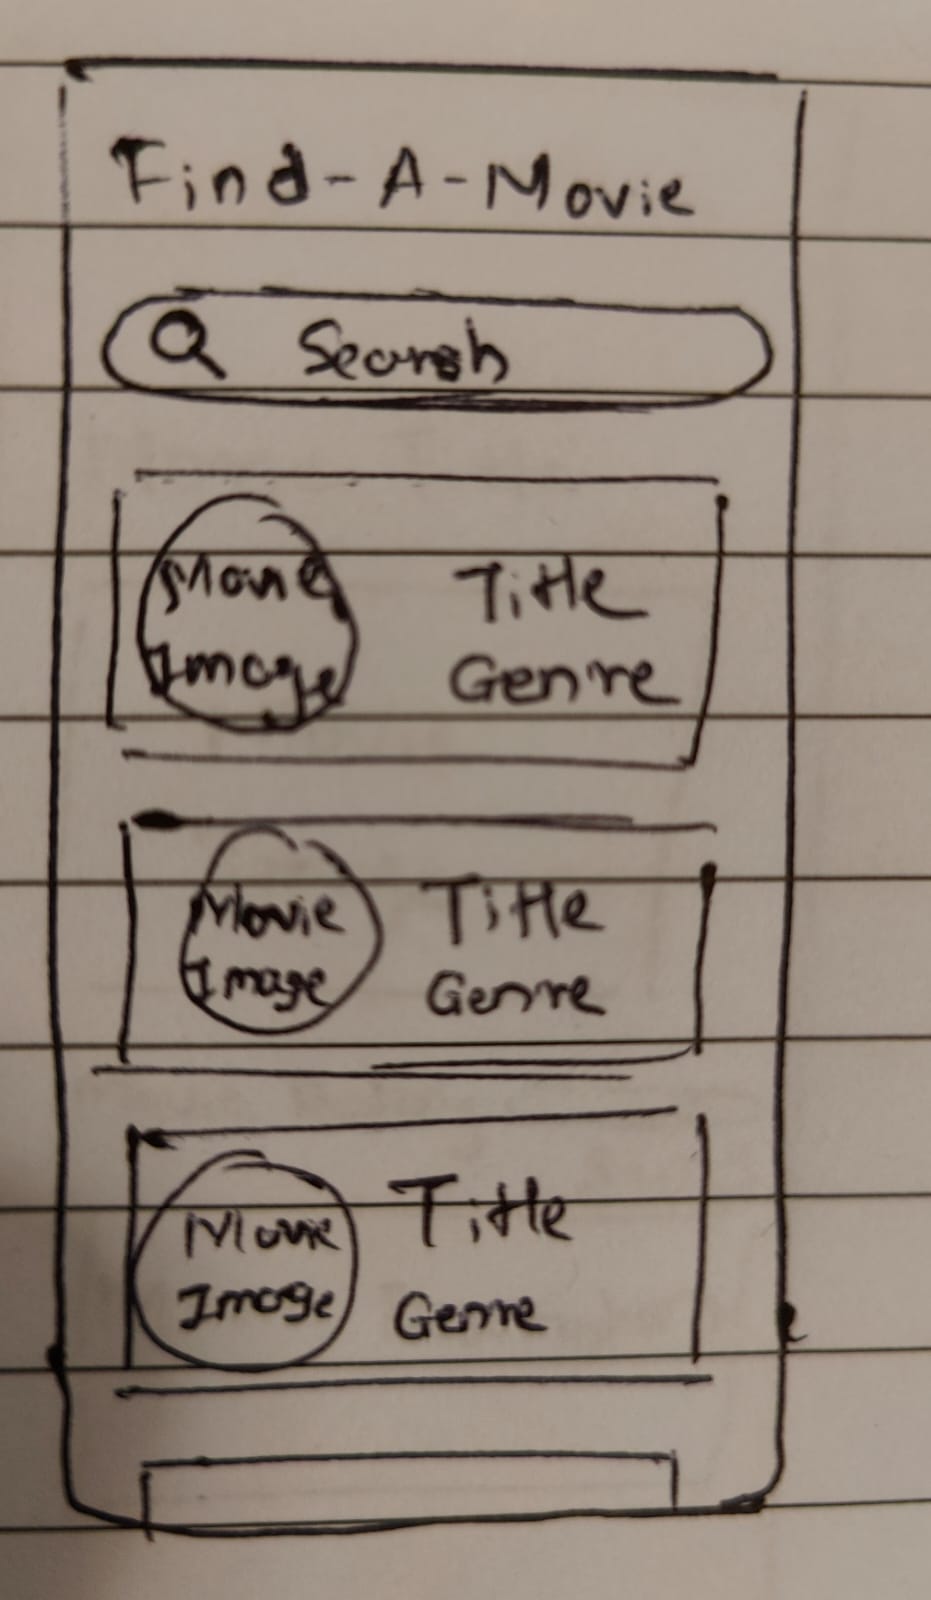 Find-A-Movie
Search
Movie
Image
Title
Genre
Movie
Image
Title
Genre
Movie
Image
Title
Genre